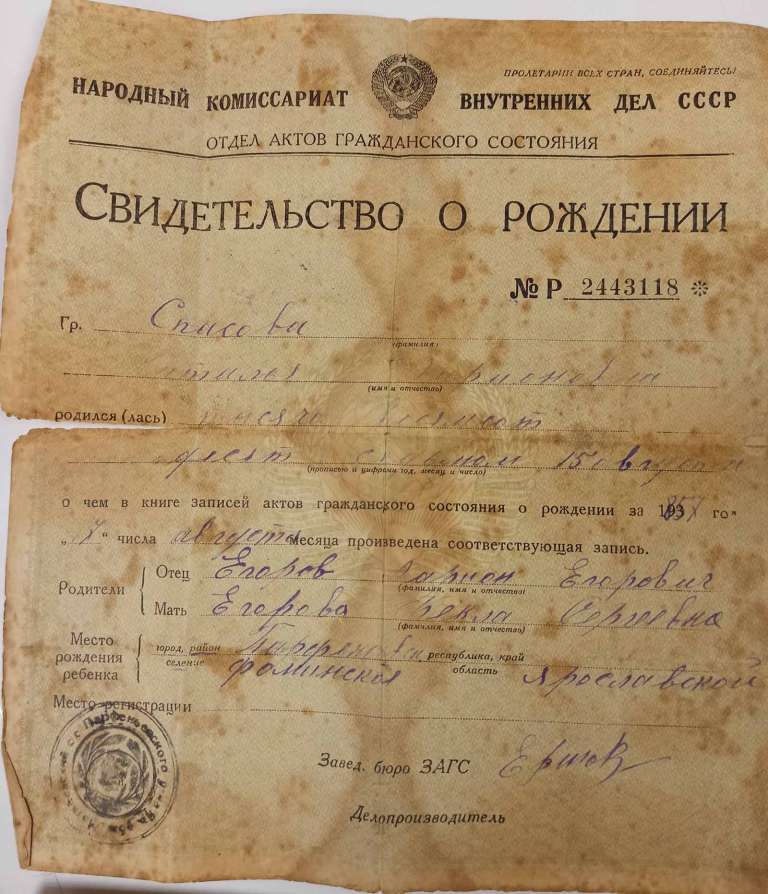 ПРОЛЕТАРИИ ВСЕХ СТРАН, СОЕДИНЯЙТЕСЬ!
НАРОДНЫЙ КОМИССАРИАТ ВНУТРЕННИХ ДЕЛ СССР
ОТДЕЛ АКТОВ ГРАЖДАНСКОГО СОСТОЯНИЯ
СВИДЕТЕЛЬСТВО О РОЖДЕНИИ
№ Р 2443118
Гр. Спасова
(фамилия)
(имя и отчество)
родился (лась)
десят 15 августа
(прописью и цифрами год, месяц и число)
о чем в книге записей актов гражданского состояния о рождении за 193 го
„ 17 “ числа августа месяца произведена соответствующая запись.
Родители
Отец Егоров Ларион Егорович
(фамилия, имя и отчество)
Мать Егорова Фекла Сергеевна
(фамилия, имя и отчество)
Место рождения ребенка
город, район республика, край
селение Фоминское область Ярославской
Место регистрации
Завед. бюро ЗАГС
Делопроизводитель